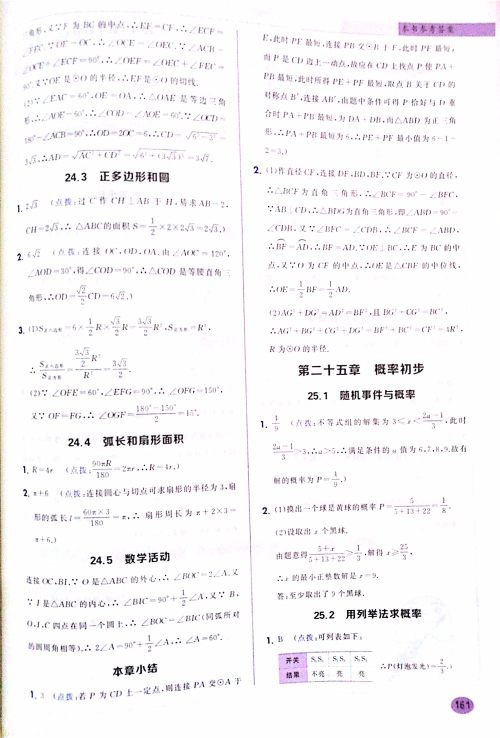 本书参考答案
角形,又∵F 为 BC 的中点,∴EF=CF,∴∠ECF=
∠FEC.∵OE=OC,∴∠OCE=∠OEC.∵∠ACB=
∠OCE+∠ECF=90°,∴∠OEF=∠OEC+∠FEC=
90°.又∵OE 是⊙O 的半径,∴EF 是⊙O 的切线.
(2)∵∠EAC=60°,OE=OA,∴△OAE 是等边三角
形,∴∠AOE=60°,∴∠COD=∠AOE=60°.∵∠OCD=
180°-∠ACB=90°,∴OD=2OC=6,∴CD=√(6²-3²)=
3√3,∴AD=√(AC²+CD²)=√(6²+(3√3)²)=3√7.
24.3 正多边形和圆
1. 2√3 (点拨:过 C 作 CH⊥AB 于 H,易求 AB=2,
CH=2√3,∴△ABC的面积 S=1/2×2×2√3=2√3.)
2. 6√2 (点拨:连接 OC,OD,OA.由∠AOC=120°,
∠AOD=30°,得∠COD=90°,∴△COD 是等腰直角三
角形,∴OD=√2/2 CD=6√2.)
3. (1)S正六边形=6×1/2 R×√3/2 R=3√3/2 R²,S正方形=R²,
∴S正六边形/S正方形=(3√3/2 R²)/R²=3√3/2.
(2)∵∠OFE=60°,∠EFG=90°,∴∠OFG=150°,
又∵OF=FG,∴∠OGF=(180°-150°)/2=15°.
24.4 弧长和扇形面积
1. R=4r (点拨:90πR/180=2πr,∴R=4r.)
2. π+6 (点拨:连接圆心与切点可求扇形的半径为 3,扇
形的弧长 l=60π×3/180=π,∴扇形周长为 π+2×3=
π+6.)
24.5 数学活动
连接 OC,BI,∵O 是△ABC 的外心,∴∠BOC=2∠A.又
∵I 是△ABC 的内心,∴∠BIC=90°+1/2∠A,又∵B,
O,I,C 四点在同一个圆上,∴∠BOC=∠BIC(同弧所对
的圆周角相等),∴2∠A=90°+1/2∠A,∴∠A=60°.
本章小结
1. 3 (点拨:若 P 为 CD 上一定点,则连接 PA 交⊙A 于
E,此时 PE 最短,连接 PB 交⊙B 于 F,此时 PF 最短,
而 P 是 CD 边上一动点,故应在 CD 上找点 P 使 PA+
PB 最短,此时所得 PE+PF 最短,取点 B 关于 CD 的
对称点 B′,连接 AB′,由题中条件可得 P 恰好与 D 重
合时 PA+PB 最短,为 DA+DB,而△ABD 为正三角
形,∴PA+PB 最短为 6,∴PE+PF 最小值为 6-1-
2=3.)
2. (1)作直径 CF,连接 DF,BD,BF.∵CF 为⊙O 的直径,
∴△BCF 为直角三角形,∴∠BCF=90°-∠BFC,
∵AB⊥CD,∴△BDG为直角三角形,即∠ABD=90°-
∠CDB,又∵∠BFC=∠CDB,∴∠BCF=∠ABD,
∴BF=AD,∴BF=AD.∵OE⊥BC,∴E 为 BC 的中
点,又∵O 为 CF 的中点,∴OE 是△CBF 的中位线,
∴OE=1/2 BF=1/2 AD.
(2)AG²+DG²=AD²=BF²,且 BG²+CG²=BC²,
∴AG²+BG²+CG²+DG²=BF²+BC²=CF²=4R²,
R 为⊙O 的半径.
第二十五章 概率初步
25.1 随机事件与概率
1. 1/9 (点拨:不等式组的解集为 3<x<(2a-1)/3,此时
(2a-1)/3>3,∴a>5,∴满足条件的 a 值为 6,7,8,9,故有
解的概率为 P=4/9.)
2. (1)摸出一个球是黄球的概率 P=5/(5+13+22)=1/8.
(2)设取出 x 个黑球.
由题意得(5+x)/(5+13+22)≥1/3,解得 x≥25/3,
∴x 的最小正整数解是 x=9.
答:至少取出了 9 个黑球.
25.2 用列举法求概率
1. B (点拨:可列表如下:
开关 S₁S₂ S₁S₃ S₂S₃
结果 不亮 亮 亮
∴P(灯泡发光)=2/3.)
161